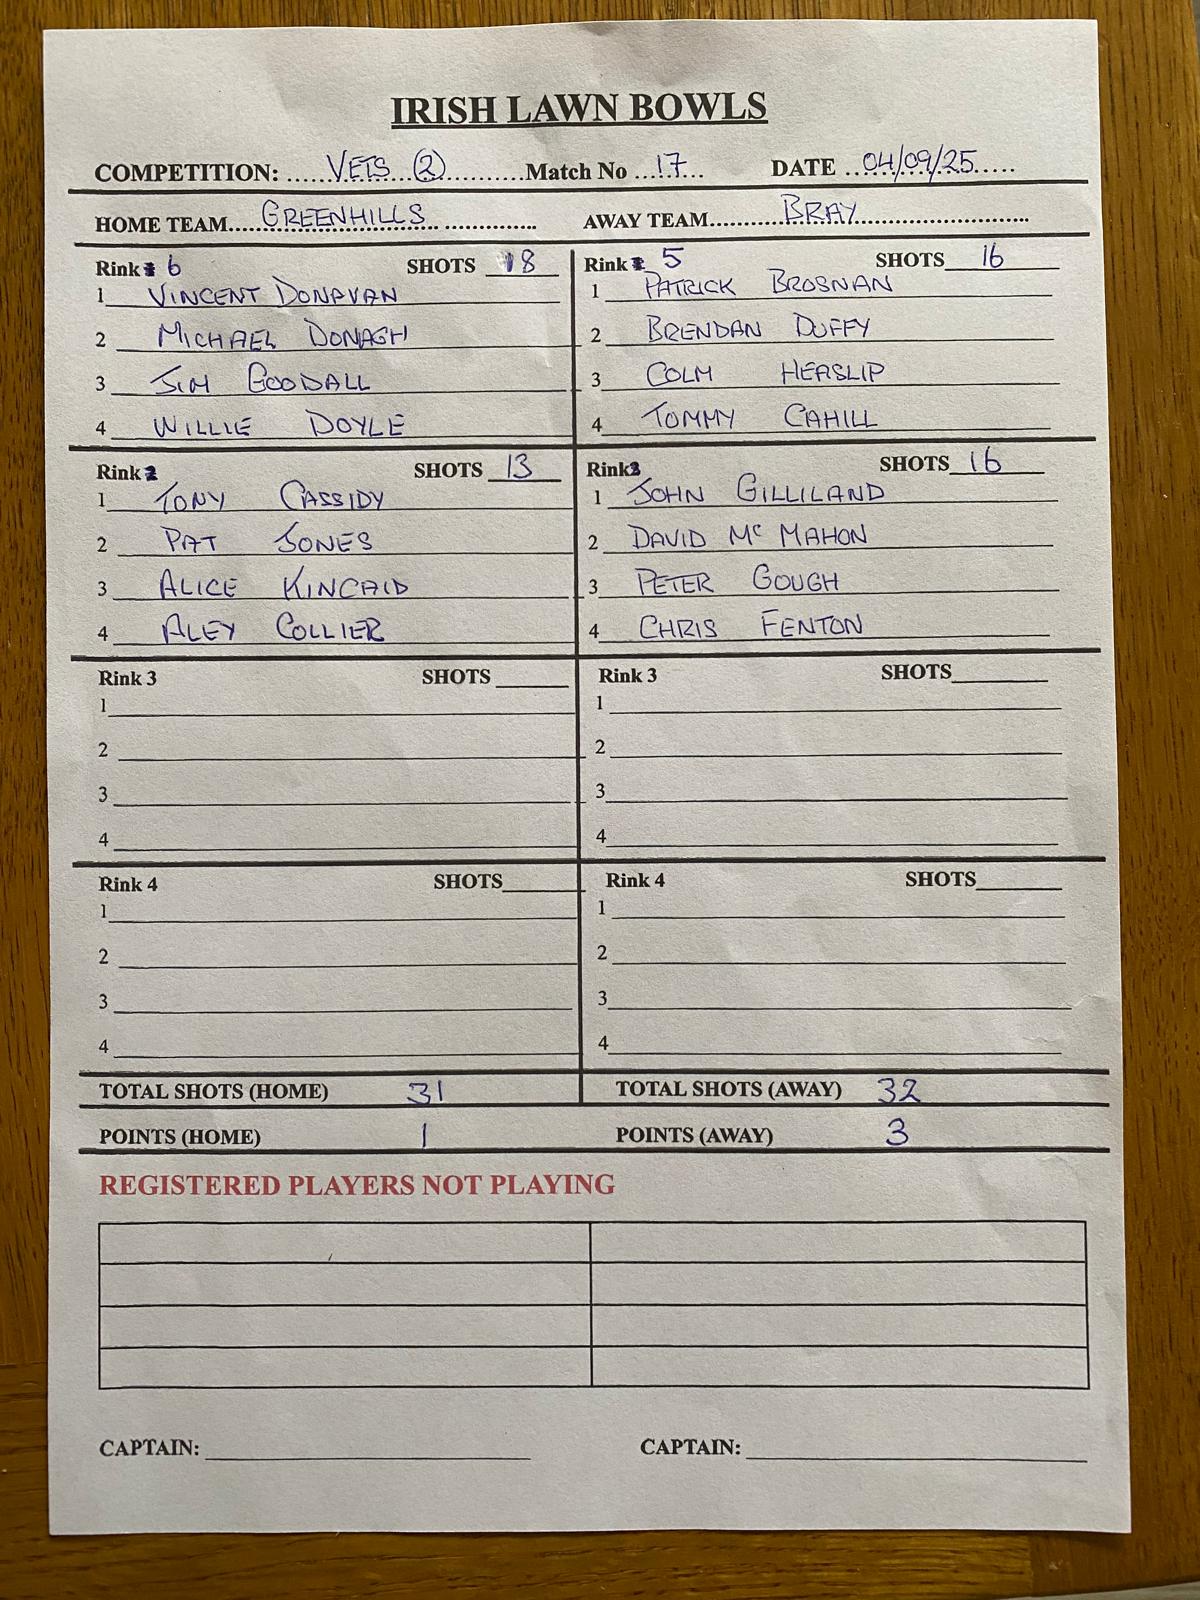 IRISH LAWN BOWLS
COMPETITION: ......VETS (2)..........Match No ...17... DATE ..04/09/25.....
HOME TEAM....GREENHILLS.................. AWAY TEAM...........BRAY.........................
Rink 6 SHOTS 18
1 VINCENT DONAVAN
2 MICHAEL DONAGH
3 JIM GOODALL
4 WILLIE DOYLE
Rink 5 SHOTS 16
1 PATRICK BROSNAN
2 BRENDAN DUFFY
3 COLM HEASLIP
4 TOMMY CAHILL
Rink 2 SHOTS 13
1 TONY CASSIDY
2 PAT JONES
3 ALICE KINCAID
4 ALEY COLLIER
Rink SHOTS 16
1 JOHN GILLILAND
2 DAVID Mc MAHON
3 PETER GOUGH
4 CHRIS FENTON
Rink 3 SHOTS
1
2
3
4
Rink 3 SHOTS
1
2
3
4
Rink 4 SHOTS
1
2
3
4
Rink 4 SHOTS
1
2
3
4
TOTAL SHOTS (HOME) 31 TOTAL SHOTS (AWAY) 32
POINTS (HOME) 1 POINTS (AWAY) 3
REGISTERED PLAYERS NOT PLAYING
CAPTAIN: CAPTAIN: